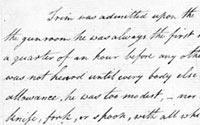 Trim was admitted upon the
the gunroom he was always the first
a quarter of an hour before any othe
was not heard until every body else
allowance, he was too modest, – nor
knife, fork, or spoon, with all whi